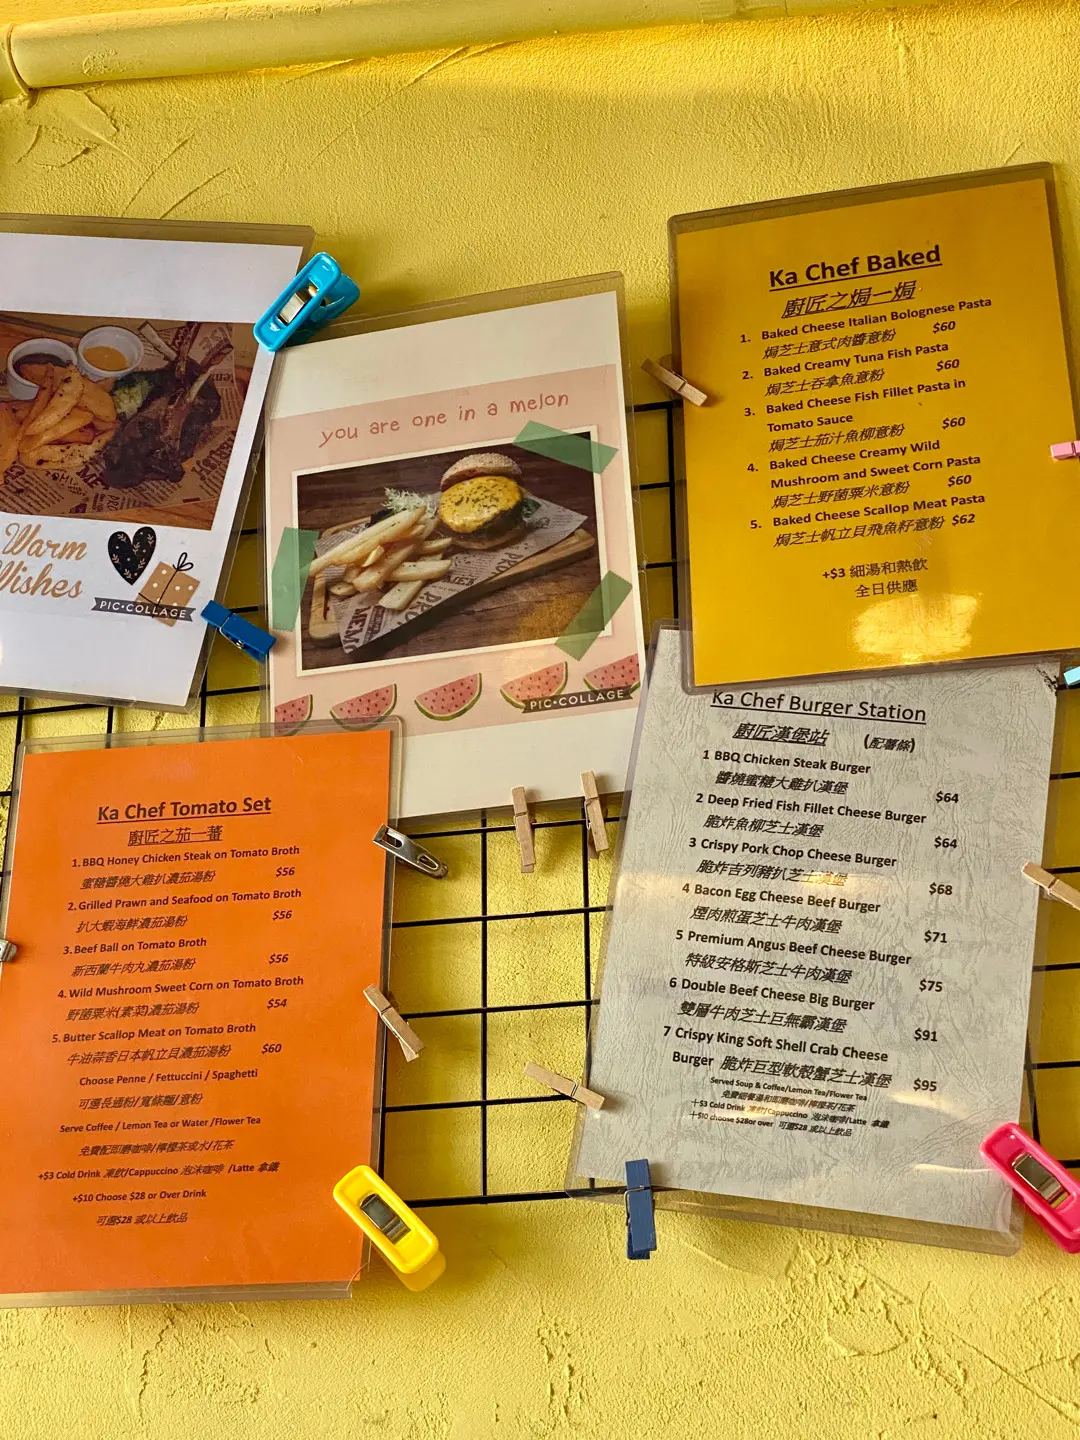 Warm
Wishes
PIC•COLLAGE
you are one in a melon
PIC•COLLAGE
Ka Chef Baked
廚匠之焗一焗
1. Baked Cheese Italian Bolognese Pasta
焗芝士意式肉醬意粉 $60
2. Baked Creamy Tuna Fish Pasta
焗芝士吞拿魚意粉 $60
3. Baked Cheese Fish Fillet Pasta in
Tomato Sauce
焗芝士茄汁魚柳意粉 $60
4. Baked Cheese Creamy Wild
Mushroom and Sweet Corn Pasta
焗芝士野菌粟米意粉 $60
5. Baked Cheese Scallop Meat Pasta
焗芝士帆立貝飛魚籽意粉 $62
+$3 細湯和熱飲
全日供應
Ka Chef Tomato Set
廚匠之茄一蕃
1. BBQ Honey Chicken Steak on Tomato Broth
蜜糖醬燒大雞扒濃茄湯粉 $56
2. Grilled Prawn and Seafood on Tomato Broth
扒大蝦海鮮濃茄湯粉 $56
3. Beef Ball on Tomato Broth
新西蘭牛肉丸濃茄湯粉 $56
4. Wild Mushroom Sweet Corn on Tomato Broth
野菌粟米(素菜)濃茄湯粉 $54
5. Butter Scallop Meat on Tomato Broth
牛油蒜香日本帆立貝濃茄湯粉 $60
Choose Penne / Fettuccini / Spaghetti
可選長通粉/寬條麵/意粉
Serve Coffee / Lemon Tea or Water /Flower Tea
免費配即磨咖啡/檸檬茶或水/花茶
+$3 Cold Drink 凍飲/Cappuccino 泡沫咖啡 /Latte 拿鐵
+$10 Choose $28 or Over Drink
可選$28 或以上飲品
Ka Chef Burger Station
廚匠漢堡站 (配薯條)
1 BBQ Chicken Steak Burger
醬燒蜜糖大雞扒漢堡 $64
2 Deep Fried Fish Fillet Cheese Burger
脆炸魚柳芝士漢堡 $64
3 Crispy Pork Chop Cheese Burger
脆炸吉列豬扒芝士漢堡 $68
4 Bacon Egg Cheese Beef Burger
煙肉煎蛋芝士牛肉漢堡 $71
5 Premium Angus Beef Cheese Burger
特級安格斯芝士牛肉漢堡 $75
6 Double Beef Cheese Big Burger
雙層牛肉芝士巨無霸漢堡 $91
7 Crispy King Soft Shell Crab Cheese
Burger 脆炸巨型軟殼蟹芝士漢堡 $95
Served Soup & Coffee/Lemon Tea/Flower Tea
免費細餐湯和即磨咖啡/檸檬茶/花茶
+$3 Cold Drink 凍飲/Cappuccino 泡沫咖啡/Latte 拿鐵
+$10 choose $28or over 可選$28 或以上飲品